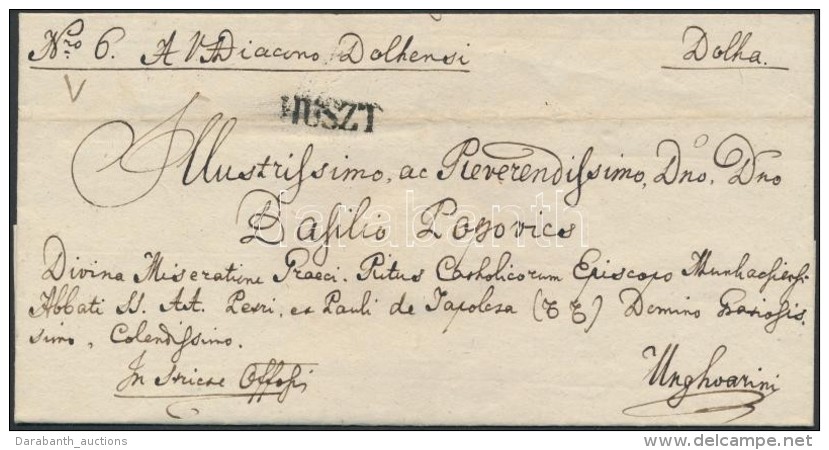 Nro 6. A VADiacono Dolhensi Dolha.
HUSZT
Illustrissimo, ac Reverendissimo, Dno, Dno
Basilio Popovics
Divina Miseratione Graeci Ritus Catholicorum Episcopo Munkacsiensi
Abbati SS. Apt. Petri, et Pauli de Tapolcza () Domino Gratiosis.
simo, Colendissimo.
In Officiosis
Unghvarini
darabanth
Darabanth_auctions
www.delcampe.net